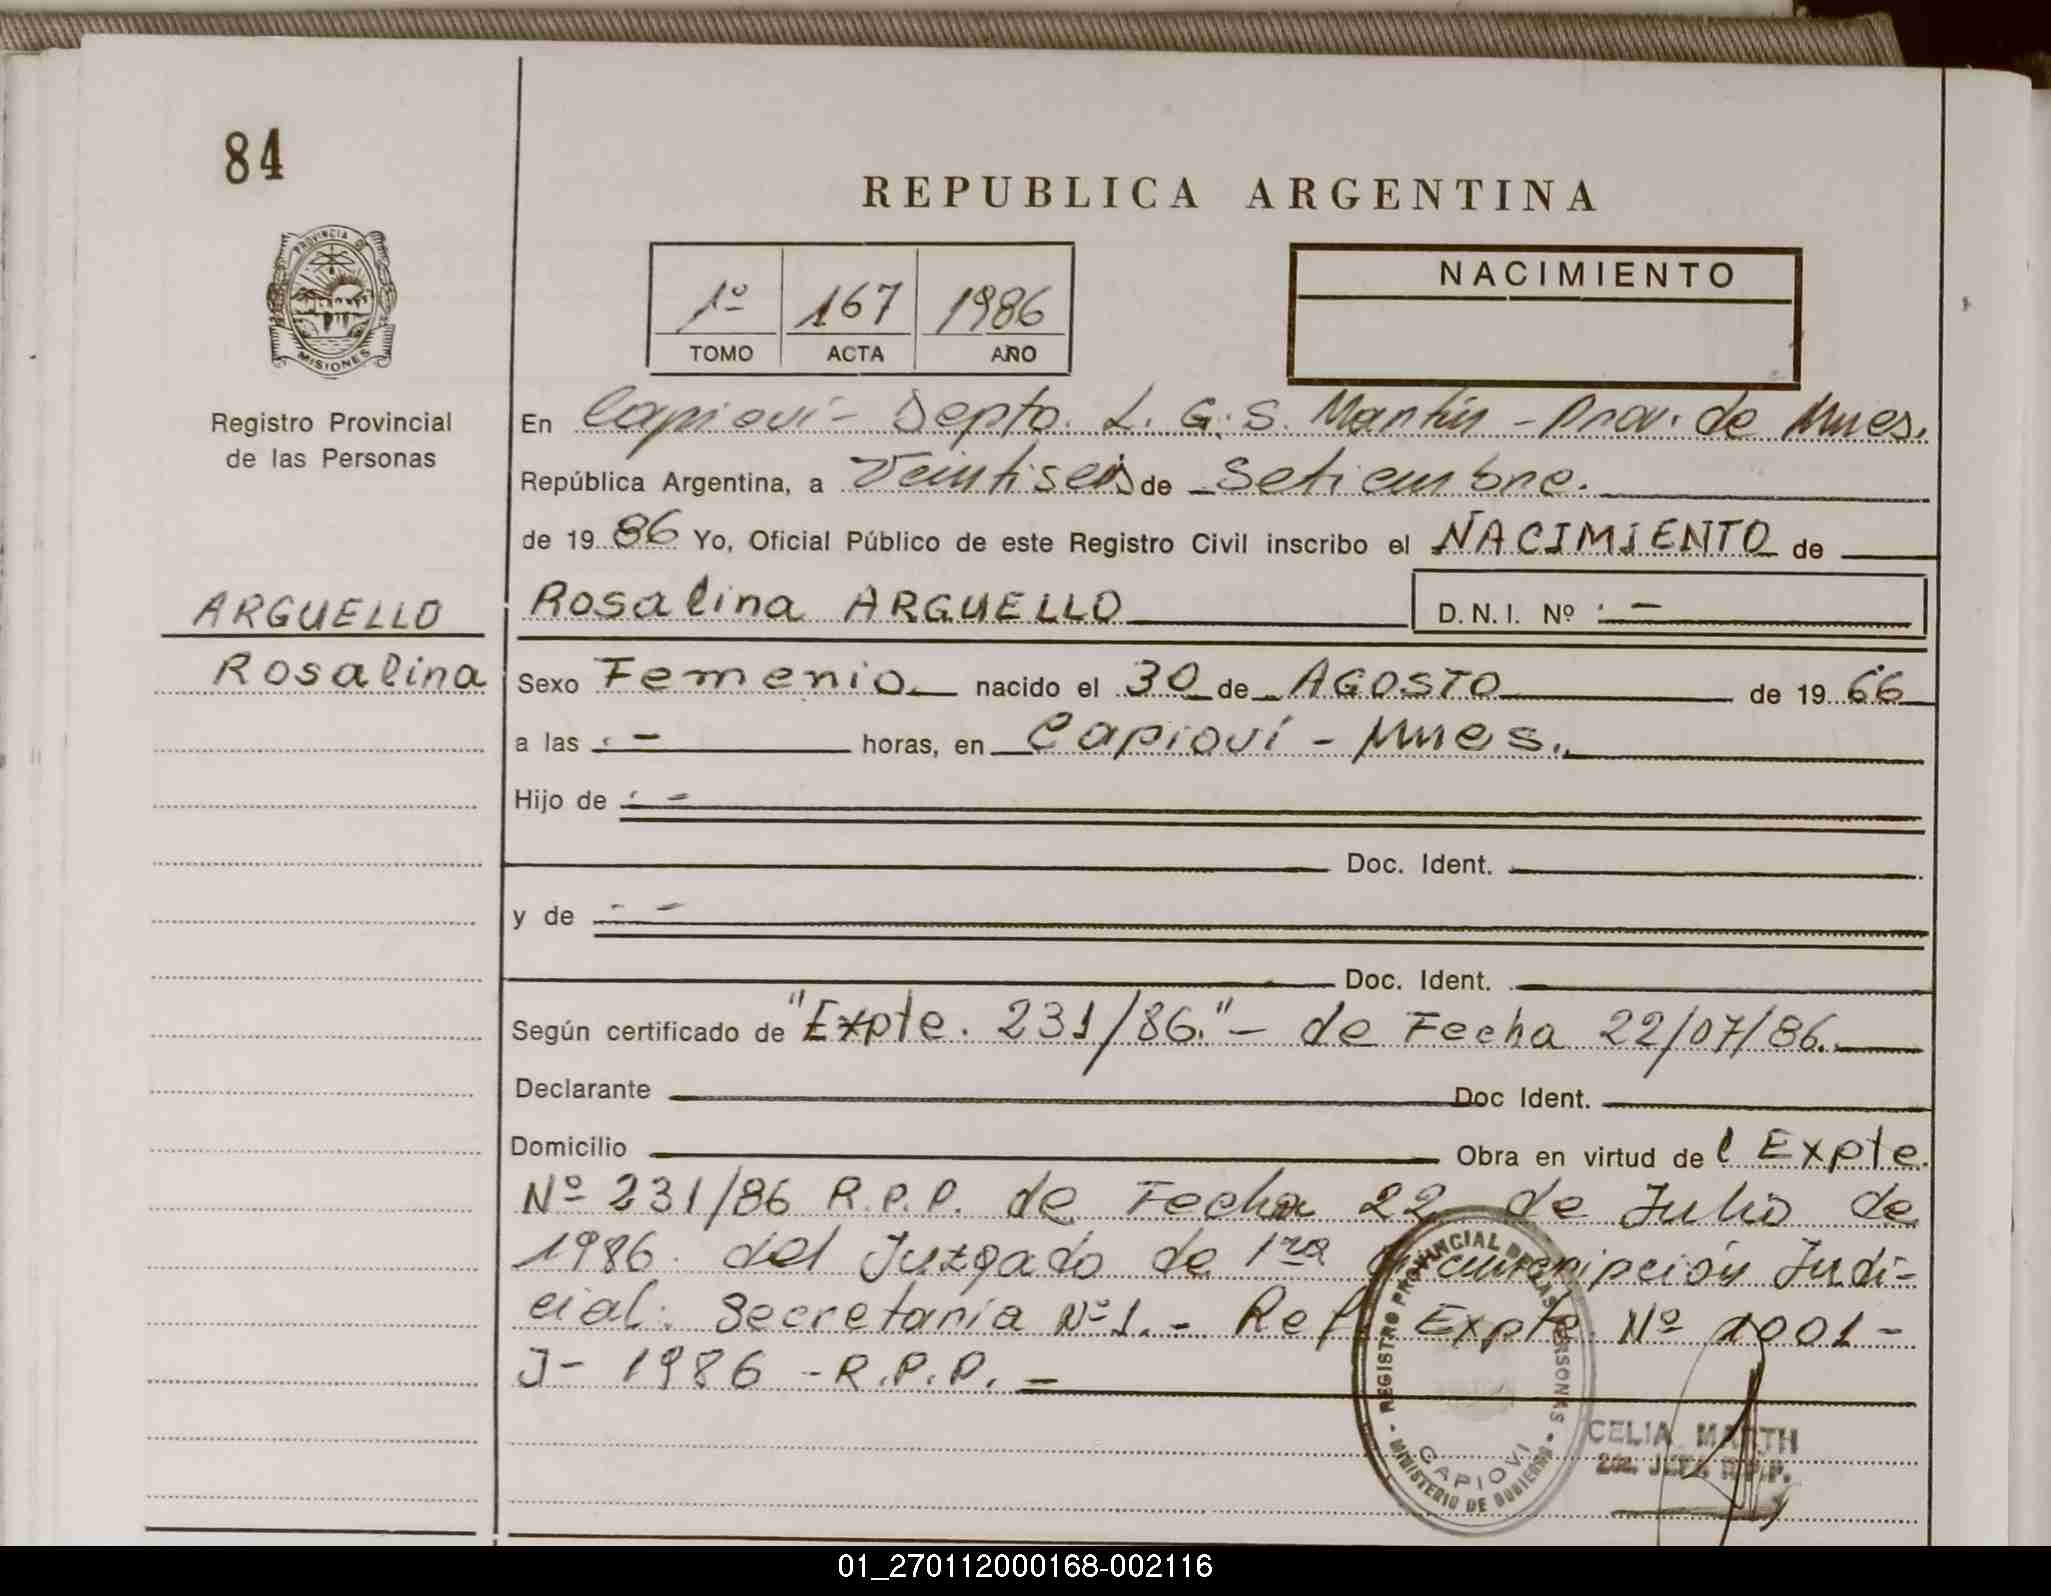 84
REPUBLICA ARGENTINA
PROVINCIA DE
MISIONES
Registro Provincial
de las Personas
1º 167 1986
TOMO ACTA AÑO
NACIMIENTO
En Capioví - Depto. L. G. S. Martín - Prov. de Mnes.
República Argentina, a Veintiseis de Setiembre.
de 1986 Yo, Oficial Público de este Registro Civil inscribo el NACIMIENTO de
ARGUELLO
Rosalina
Rosalina ARGUELLO D. N. I. Nº -
Sexo Femenio nacido el 30 de AGOSTO de 1966
a las - horas, en Capioví - Mnes.
Hijo de -
Doc. Ident.
y de -
Doc. Ident.
Según certificado de "Expte. 231/86." - de Fecha 22/07/86.
Declarante Doc Ident.
Domicilio Obra en virtud de l Expte.
Nº 231/86 R.P.P. de Fecha 22 de Julio de
1986. del Juzgado de 1ra Circunscripción Judi-
cial. Secretaria Nº 1. - Ref. Expte. Nº 1001-
J- 1986 - R.P.P. -
REGISTRO PROVINCIAL DE LAS PERSONAS
MINISTERIO DE GOBIERNO
CAPIOVI
CELIA MARTH
JEFA R.P.P.
01_270112000168-002116